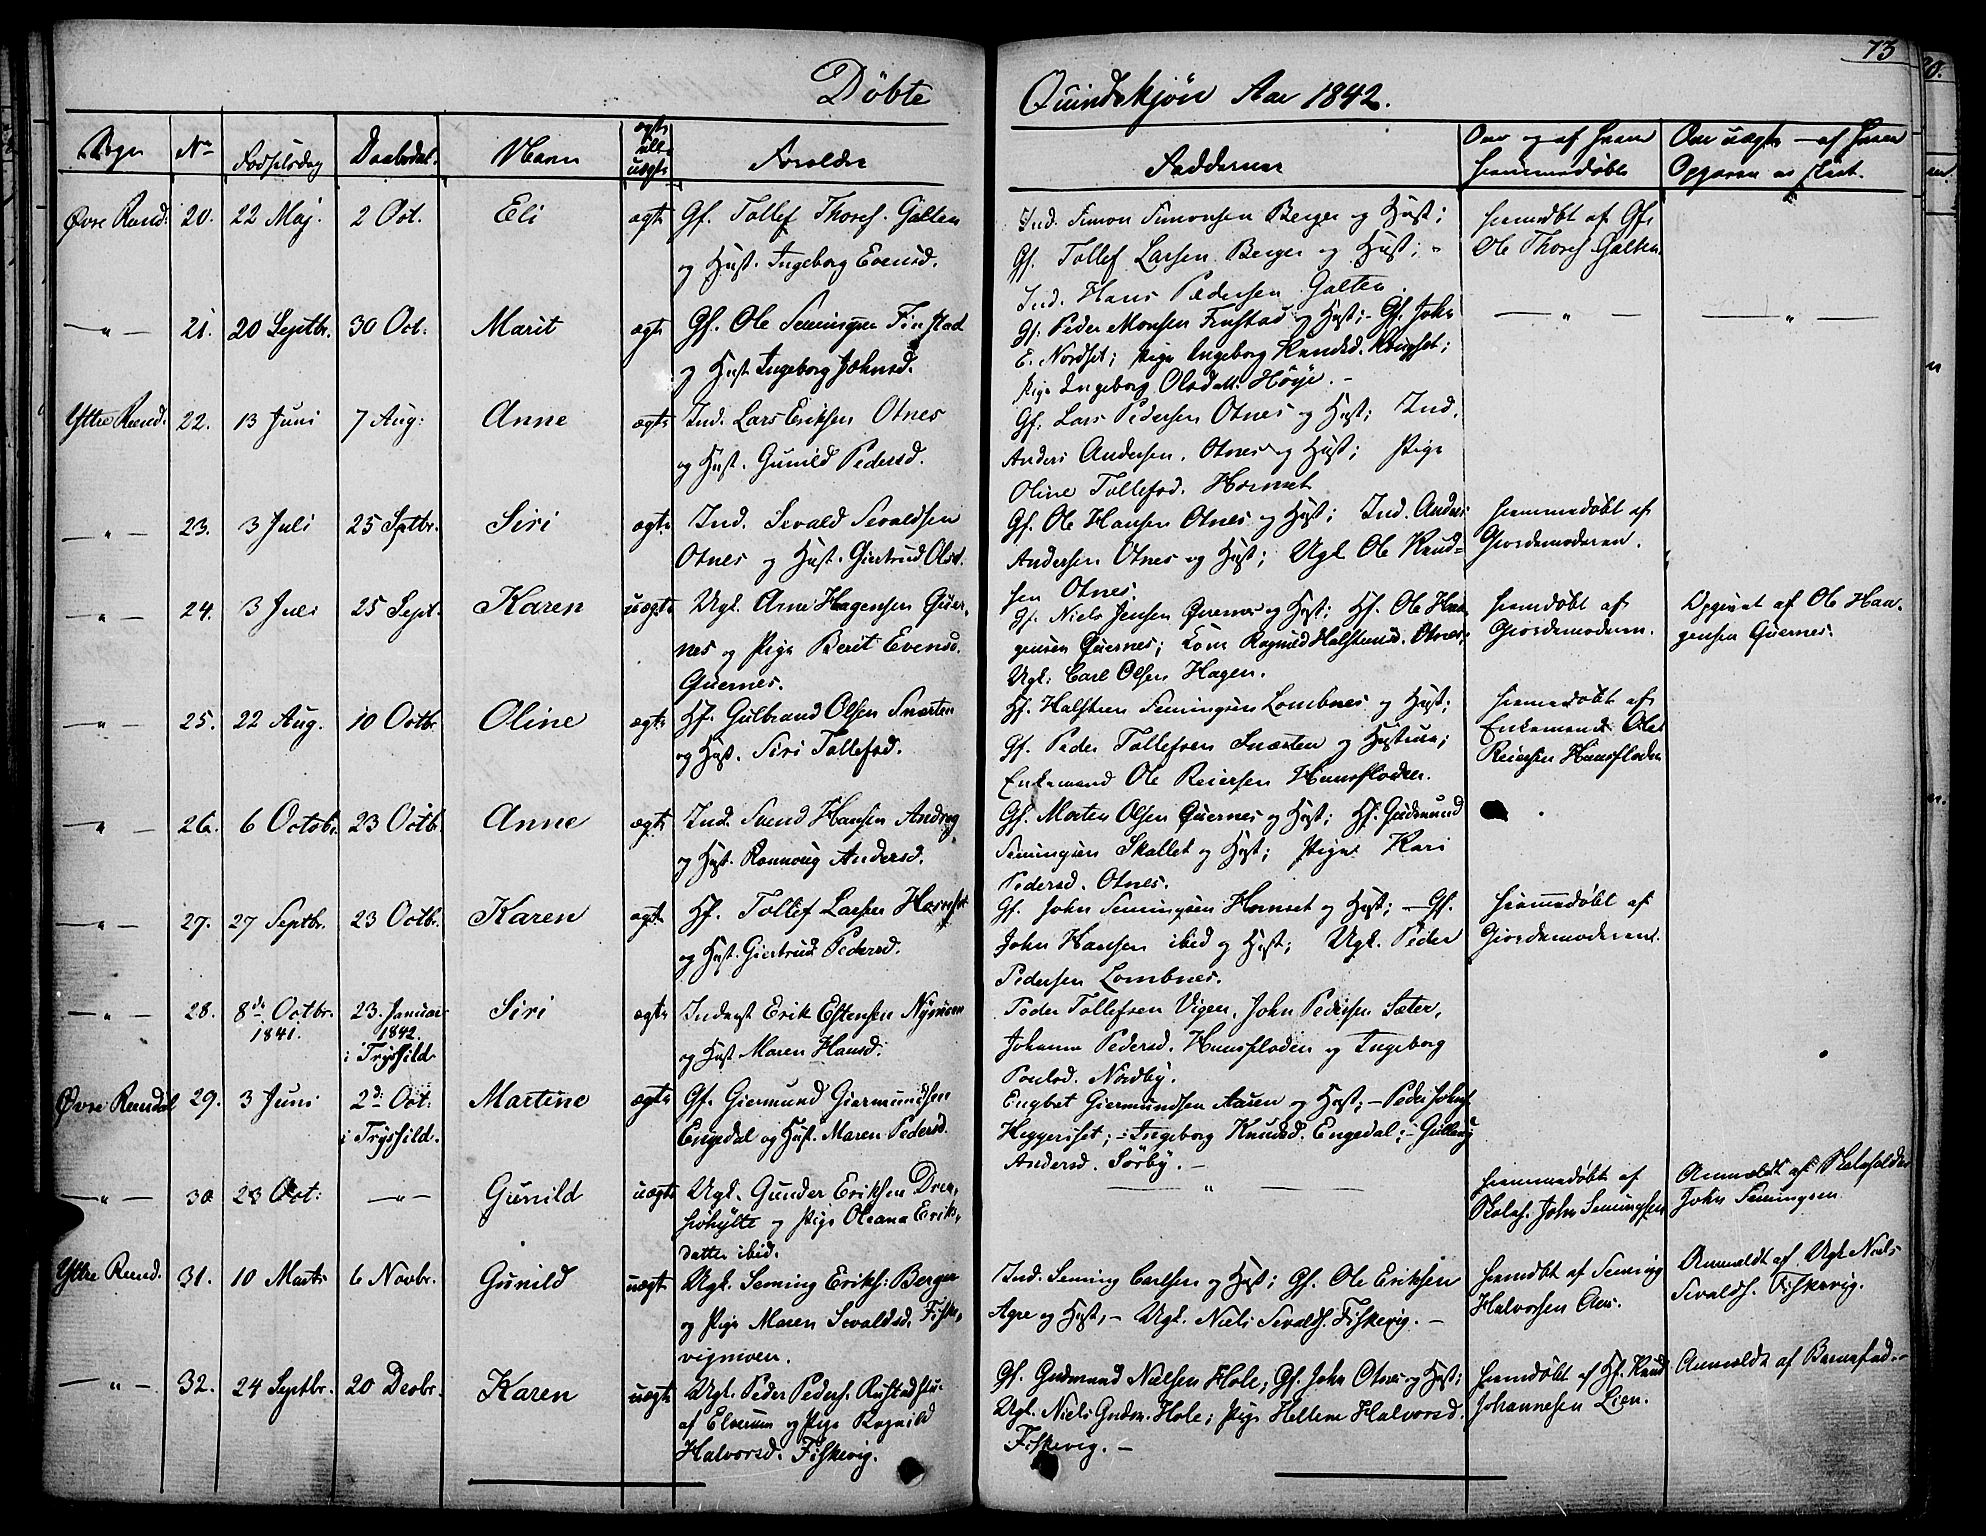 73
Döbte
Quindekjön Aar 1842.
Sogn No Fødselsdag Daabsdat. Navn ægte ell. uægte Forældre
Faddernes
Om og af hvem hjemmedøbt
Om uægte — af hvem Opgaven er skeet.
Øvre Rend. 20. 22 Maj. 2 Oct. Eli ægte Gf. Tollef Thoresf. Galten
og Hust. Ingeborg Evensd.
Ind. Simon Simonsen Berger og Hust;
Gf. Tollef Larsen Berger og Hust; -
Ind. Hans Pedersen Galten.
hjemdbt af Gf.
Ole Thoresf. Galten.
—„— 21. 20 Septbr. 30 Oct. Marit ægte Gf. Ole Semingsen Finstad
og Hust Ingeborg Johnsd.
Gf. Peder Monsen Finstad og Hust; - Gf. John
E. Nordset; Pige Ingeborg Knudsd.
Pige Ingeborg Olsdatt. Høye. -
—„—
—„—
Yttre Rend. 22. 13 Juni 7 Aug: Anne ægte Ind. Lars Eriksen Otnes
og Hust. Gunild Pedersd.
Gf. Lars Pedersen Otnes og Hust; Ind.
Anders Andersen. Otnes og Hust; Pige
Oline Tollefsd. Hornset
—„— 23. 3 Juli 25 Septbr. Siri ægte Ind. Sevald Sevaldsen
Otnes og Hust. Giertrud Olsd.
Gf. Ole Hansen Otnes og Hust; Ind. Anders
Andersen Otnes og Hust; Ugk. Ole Knud=
sen Otnes.
hjemmedøbt af
Giordemoderen.
—„— 24. 3 Juli 25 Sept. Karen uægte Ugk. Arne Hagensen Quer,
nes og Pige Berit Evensd.
Quernes.
Gf. Niels Jensen Quernes og Hust; Hf. Ole Haa,
gensen Quernes; Kone Ragnild Halstensd. Otnes;
Ugk: Carl Olsen Hagen.
hjemdøbt af
Giordemoderen.
Opgivet af Ole Haa,
gensen Quernes.
—„— 25. 22 Aug. 10 Octbr. Oline ægte Hf. Gulbrand Olsen Snærten
og Hust. Siri Tollefsd.
Hf. Halsteen Semingsen Lombnes og Hust;
Gf. Peder Tollefsen Snærten og Hustrue;
Enkemand Ole Reiersen Hunsfloden.
hjemmedøbt af
Enkemand Ole
Reiersen Hunsfloden
—„— 26. 6 Octobr. 23 Octb. Anne ægte Ind. Svend Hansen Andreg
og Hust. Rannoug Andersd.
Gf. Morten Olsen Quernes og Hust; Hf. Gudmund
Semingsen Skallet og Hust; Pige Kari
Pedersd. Otnes.
—„— 27. 27 Septbr. 23 Octbr. Karen ægte Hf. Tollef Larsen Hornset
og Hust. Giertrud Pedersd.
Gf. John Semingsen Hornset og Hust; - Gf.
John Hansen ibid og Hust; Ugk. Peder
Pedersen Lombnes.
hjemmedøbt af
Giordemoderen.
—„— 28. 8de Octbr. 1841. 23. Januar 1842. i Trysild Siri ægte Inderst Erik Estensen Nymoen
og Hust Maren Hansd.
Peder Tollefsen Vigen, John Pedersen Sæter,
Johanna Pedersd. Hunsfloden og Ingeborg
Poulsd. Nordby.
Øvre Rendal 29. 3 Juni 2d. Oct: i Trysild. Martine ægte Gf. Giermund Giermundsen
Engedal og Hust. Maren Pedersd.
Engbret Giermundsen Aasen og Hust; - Peder Johns.
Heggeriset; - Ingeborg Knudsd. Engedal; -
Andersd. Sörby. -
—„— 30 23 Oct: —„— Gunild uægte Ugk. Gunder Eriksen Drev,
sjohytte og Pige Oleana Eriks,
datter ibid.
—„—
hjemmedøbt af
Skoleh. John Semingsen
Anmældt af Skoleholder
John Semingsen.
Yttre Rend. 31. 10 Marts 6 Novbr. Gunild uægte Ugk. Seming Eriks: Berger
og Pige Maren Sevaldsd. Fiske,
vigmoen.
Ind. Seming Carlsen og Hust; Gf. Ole Eriksen
Agre og Hust, - Ugk. Niels Sevalds. Fiskevig. -
hjemdøbt af Seming
Halvorsen Aas.
Anmeldt af Ugk Niels
Sevalds. Fiskevig.
—„— 32. 24 Septbr. 20 Decbr. Karen uægte Ugk. Peder Peders. Rustadstu.
af Elverum og Pige Ragnild
Halvorsd. Fiskevig.
Gf. Gudmund Nielsen Hole; Gf. John Otnes og Hust;
Ugk. Niels Gudm. Hole; Pige Hellene Halvorsd.
Fiskevig. -
hjemdøbt af Hf. Knud
Johannesen Lien.
Anmeldt af Barnefad. -